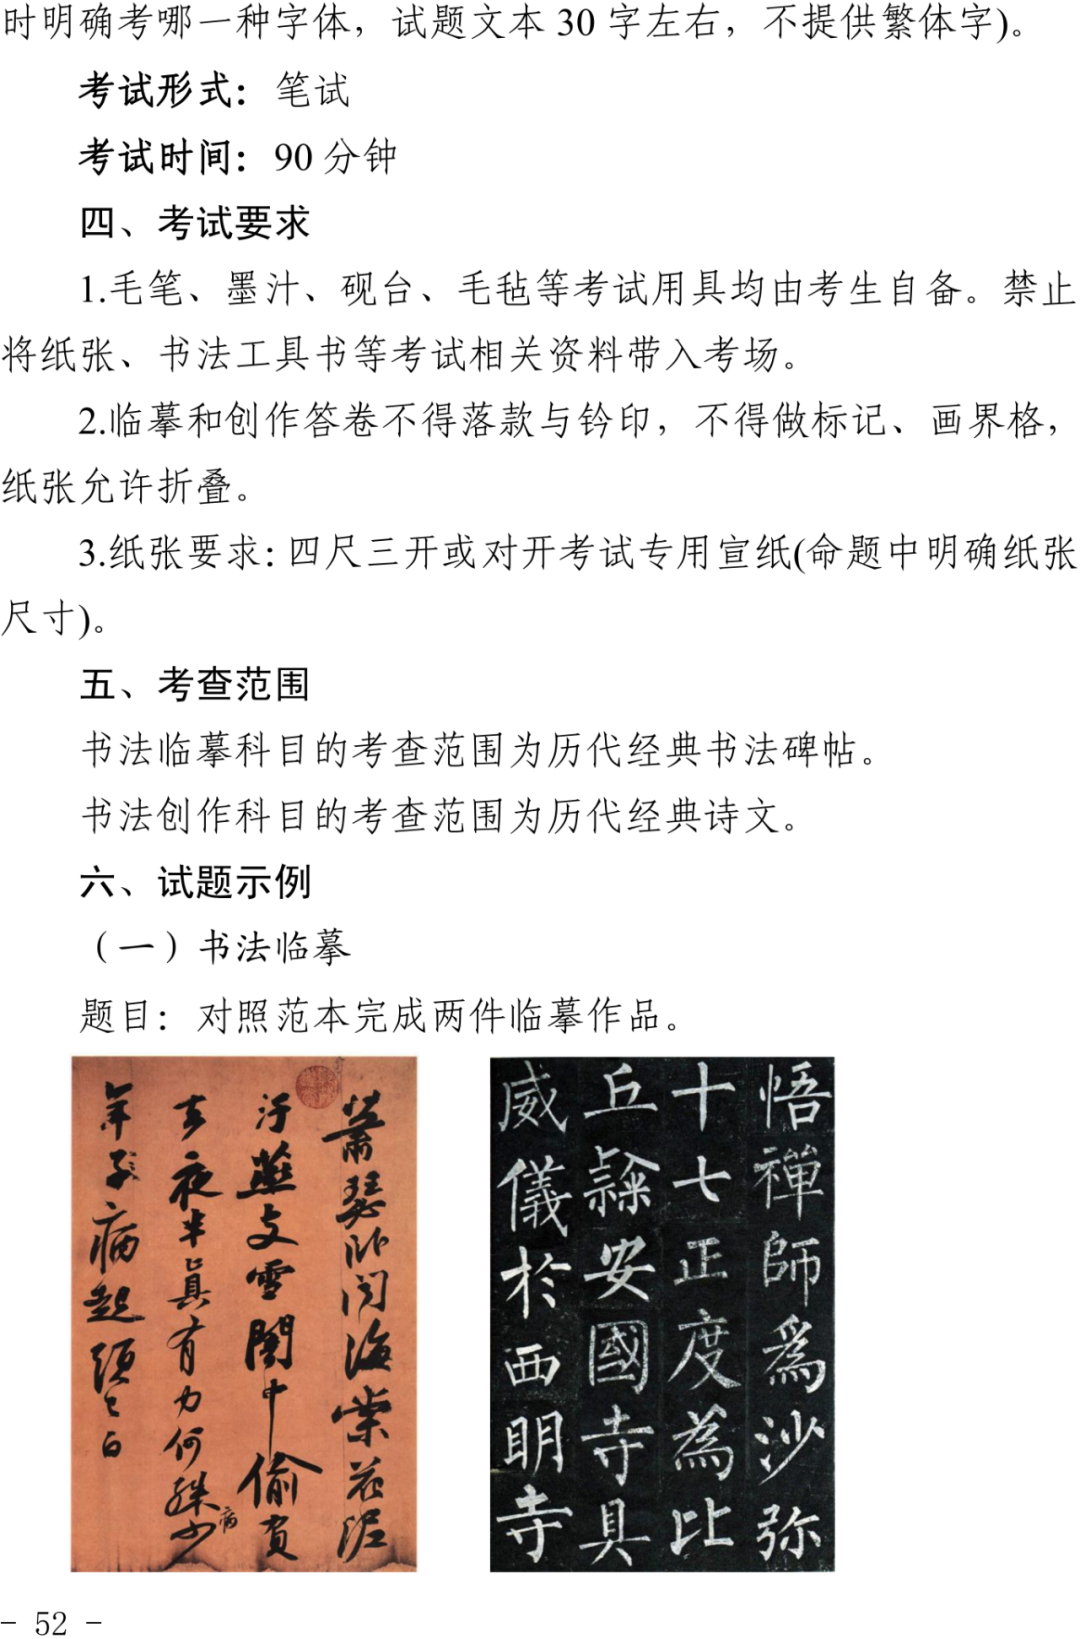 时明确考哪一种字体，试题文本 30 字左右，不提供繁体字)。
考试形式：笔试
考试时间：90 分钟
四、考试要求
1.毛笔、墨汁、砚台、毛毡等考试用具均由考生自备。禁止
将纸张、书法工具书等考试相关资料带入考场。
2.临摹和创作答卷不得落款与钤印，不得做标记、画界格，
纸张允许折叠。
3.纸张要求：四尺三开或对开考试专用宣纸(命题中明确纸张
尺寸)。
五、考查范围
书法临摹科目的考查范围为历代经典书法碑帖。
书法创作科目的考查范围为历代经典诗文。
六、试题示例
（一）书法临摹
题目：对照范本完成两件临摹作品。
萧瑟卧闻海棠花泥
汙燕支雪闇中偷負
去夜半真有力何殊少病
年子病起須已白
悟禪師為沙弥
十七正度為比
丘隸安國寺具
威儀於西明寺
- 52 -